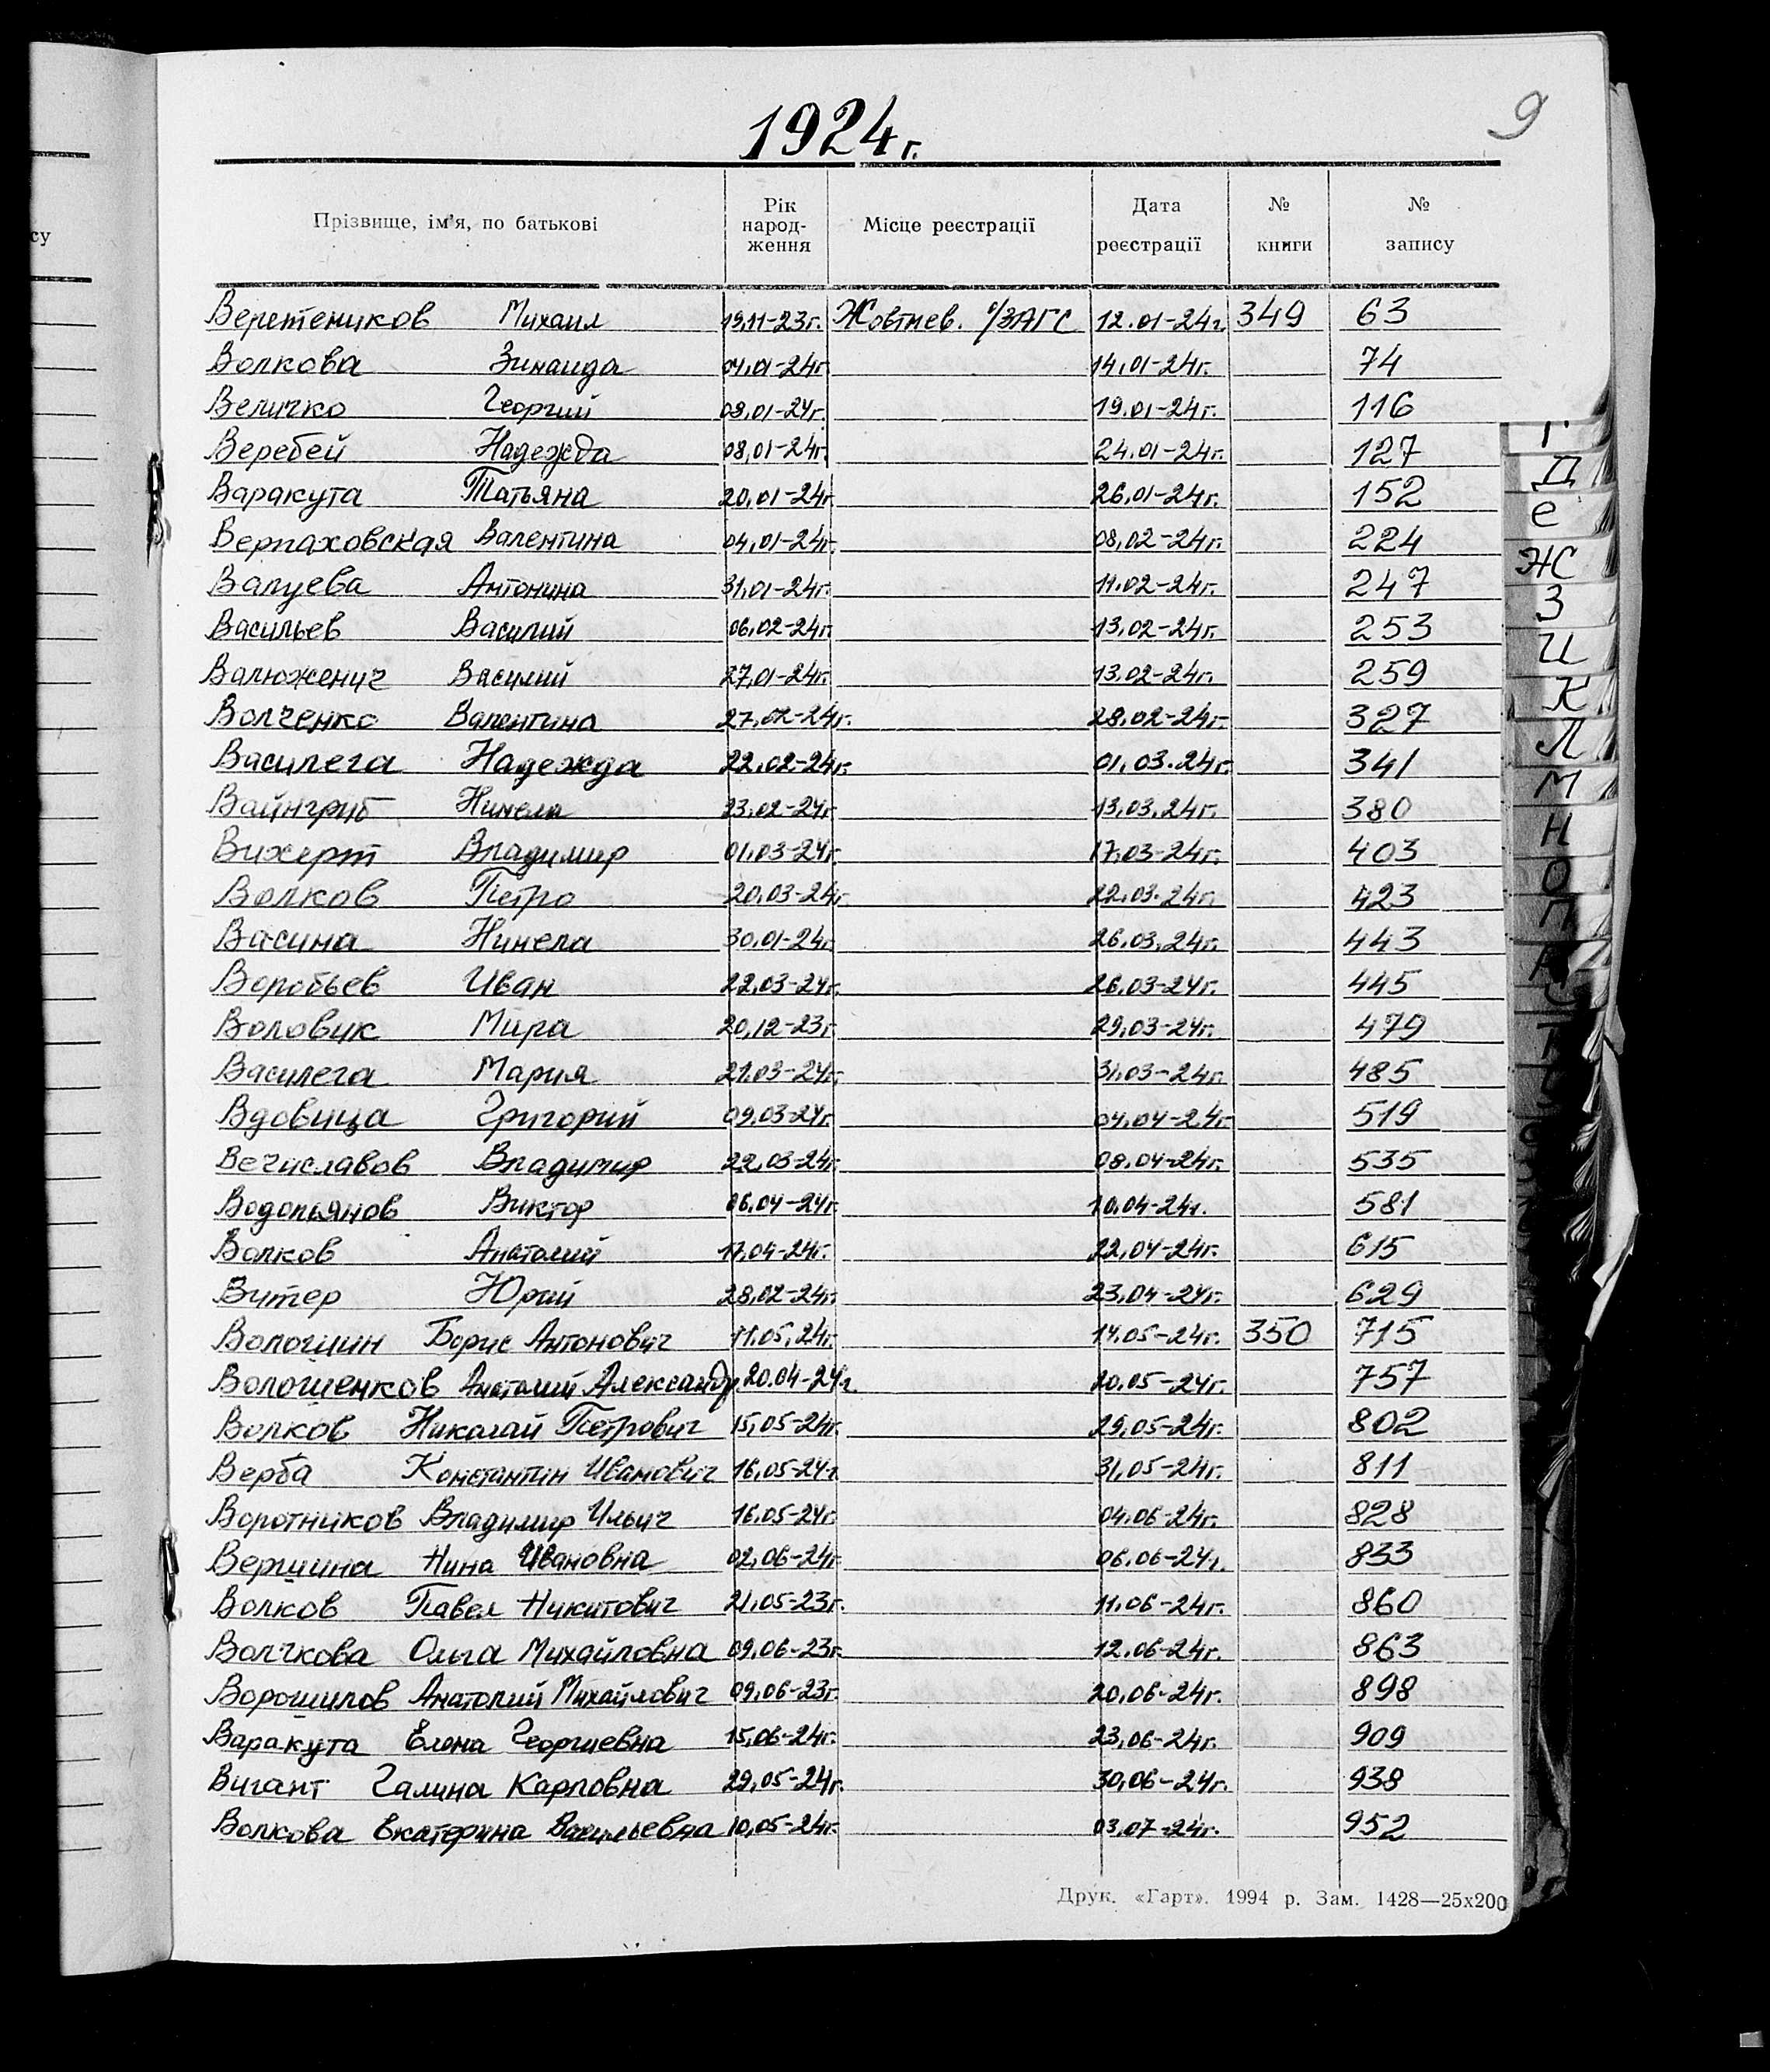 9
1924г.
Прізвище, ім'я, по батькові Рік народження Місце реєстрації Дата реєстрації № книги № запису
Веретеников Михаил 19.11-23г. Жовтнев. /ЗАГС 12.01-24г 349 63
Волкова Зинаида 04.01-24г. 14.01-24г. 74
Величко Георгий 08.01-24г. 19.01-24г. 116
Веребей Надежда 08.01-24г. 24.01-24г. 127
Варакута Татьяна 20.01-24г. 26.01-24г. 152
Верпаховская Валентина 04.01-24г. 08.02-24г. 224
Валуева Антонина 31.01-24г. 11.02-24г. 247
Васильев Василий 06.02-24г. 13.02-24г. 253
Валюженич Василий 27.01-24г. 13.02-24г. 259
Волченко Валентина 27.02-24г. 28.02-24г. 327
Василега Надежда 22.02-24г. 01.03.24г. 341
Вайнгриб Нинела 23.02-24г. 13.03.24г. 380
Вихерт Владимир 01.03-24г. 17.03-24г. 403
Волков Петро 20.03-24г. 22.03.24г. 423
Васина Нинела 30.01-24г. 26.03.24г. 443
Воробьев Иван 22.03-24г. 26.03-24г. 445
Воловик Мира 20.12-23г. 29.03-24г. 479
Василега Мария 21.03-24г. 31.03-24г. 485
Вдовица Григорий 09.03-24г. 04.04-24г. 519
Вечиславов Владимир 22.03-24г. 08.04-24г. 535
Водопьянов Виктор 06.04-24г. 10.04-24г. 581
Волков Анатолий 17.04-24г. 22.04-24г. 615
Витер Юрий 28.02-24г. 23.04-24г. 629
Волошин Борис Антонович 11.05.24г. 14.05-24г. 350 715
Волошенков Анатолий Александр. 20.04-24г. 20.05-24г. 757
Волков Николай Петрович 15.05-24г. 29.05-24г. 802
Верба Константин Иванович 16.05-24г 31.05-24г. 811
Воротников Владимир Ильич 16.05-24г. 04.06-24г. 828
Вершина Нина Ивановна 02.06-24г. 06.06-24г. 833
Волков Павел Никитович 21.05-23г. 11.06-24г. 860
Волчкова Ольга Михайловна 09.06-23г. 12.06-24г. 863
Ворошилов Анатолий Михайлович 09.06-23г. 20.06-24г. 898
Варакута Елена Георгиевна 15.06-24г. 23.06-24г. 909
Вигант Галина Карповна 29.05-24г. 30.06-24г. 938
Волкова Екатерина Васильевна 10.05-24г. 03.07-24г. 952
Друк. «Гарт». 1994 р. Зам. 1428—25х200
су
Г
Д
Е
Ж
З
И
К
Л
М
Н
О
П
Р
Т